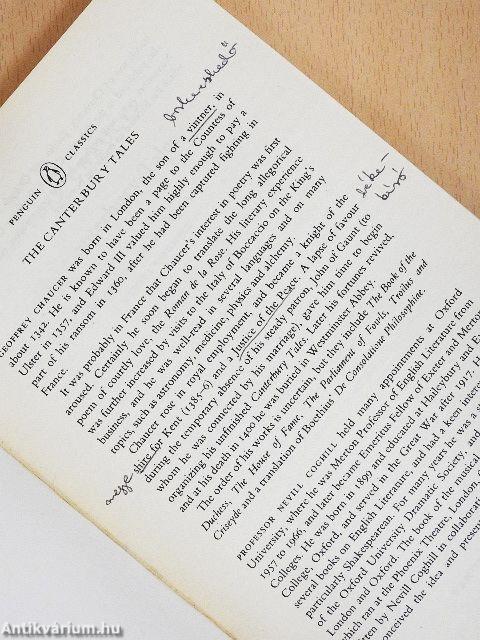 PENGUIN CLASSICS
THE CANTERBURY TALES
borkereskedő
GEOFFREY CHAUCER was born in London, the son of a vintner, in
about 1342. He is known to have been a page to the Countess of
Ulster in 1357, and Edward III valued him highly enough to pay a
part of his ransom in 1360, after he had been captured fighting in
France.
It was probably in France that Chaucer's interest in poetry was first
aroused. Certainly he soon began to translate the long allegorical
poem of courtly love, the Roman de la Rose. His literary experience
was further increased by visits to the Italy of Boccaccio on the King's
business, and he was well-read in several languages and on many
topics, such as astronomy, medicine, physics and alchemy.
Chaucer rose in royal employment, and became a knight of the
béke-
bíró
shire for Kent (1385-6) and a Justice of the Peace. A lapse of favour
megye
during the temporary absence of his steady patron, John of Gaunt (to
whom he was connected by his marriage), gave him time to begin
organizing his unfinished Canterbury Tales. Later his fortunes revived,
and at his death in 1400 he was buried in Westminster Abbey.
The order of his works is uncertain, but they include The Book of the
Duchess, The House of Fame, The Parliament of Fowls, Troilus and
Criseyde and a translation of Boethius' De Consolatione Philosophiae.
PROFESSOR NEVILL COGHILL held many appointments at Oxford
University, where he was Merton Professor of English Literature from
1957 to 1966, and later became Emeritus Fellow of Exeter and Merton
Colleges. He was born in 1899 and educated at Haileybury and Ex
College, Oxford, and served in the Great War after 1917. H
several books on English Literature and had a keen interes
particularly Shakespearean. For many years he was a s
of the Oxford University Dramatic Society, and
London and Oxford. The book of the musical
which ran at the Phoenix Theatre, London,
tten by Nevill Coghill in collaboratio
conceived the idea and presen
Antikvárium.hu